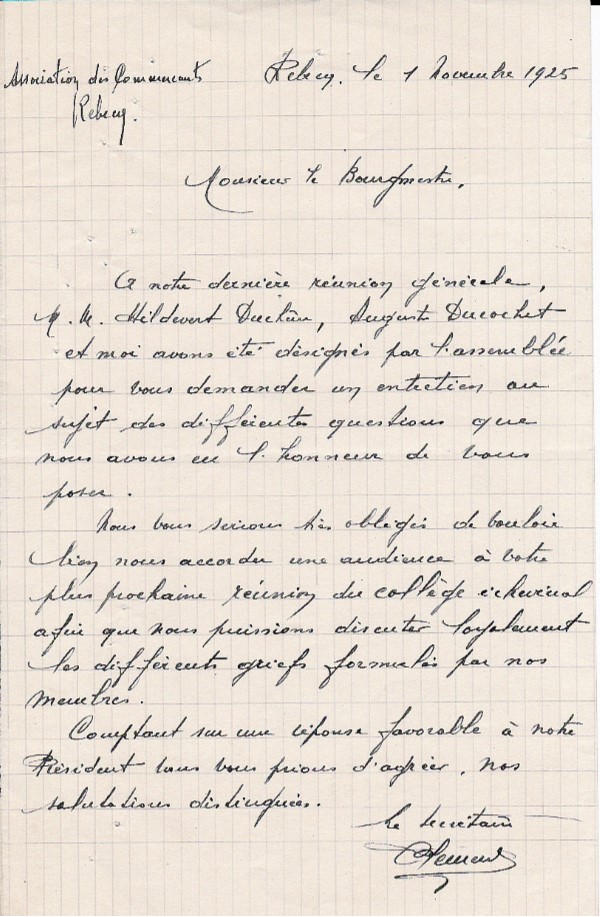 Association des Commercants
Rebecq.
Rebecq, le 1 Novembre 1925
Monsieur le Bourgmestre,
A notre dernière réunion générale,
M. M. Hildevert Auguste Ducochet
et moi avons été désignés par l'assemblée
pour vous demander un entretien au
sujet des différentes questions que
nous avons eu l'honneur de vous
poser.
Nous vous serions très obligés de vouloir
bien nous accorder une audience à votre
plus prochaine réunion du collège échevinal
afin que nous puissions discuter loyalement
les différents griefs formulés par nos
membres.
Comptant sur une réponse favorable à notre
Président vous prions d'agréer, nos
salutations distinguées.
Le secrétaire